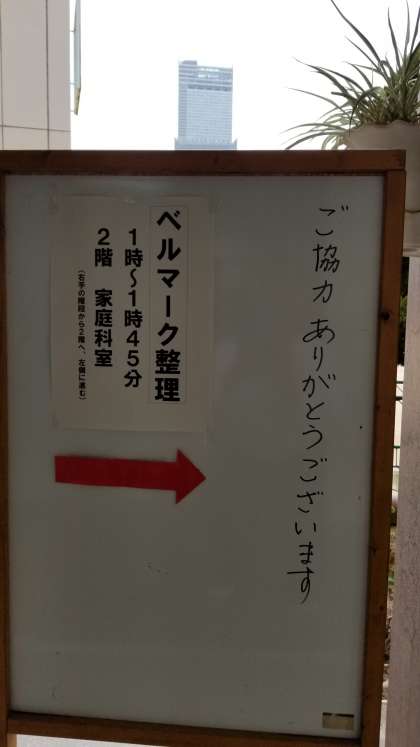 ご協力 ありがとうございます
ベルマーク整理
1時～1時45分
2階 家庭科室
(右手の階段から2階へ、左側に進む)